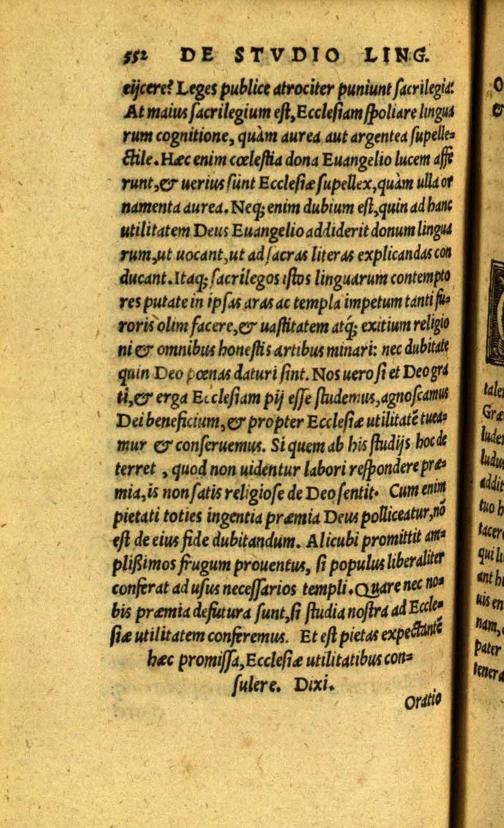 552 DE STVDIO LING.
eijcere? Leges publice atrociter puniunt sacrilegia:
At maius sacrilegium est, Ecclesiam spoliare lingua
rum cognitione, quàm aurea aut argentea supelle=
ctile. Hæc enim cœlestia dona Euangelio lucem affe
runt, & uerius sunt Ecclesiæ supellex, quàm ulla or
namenta aurea. Neq; enim dubium est, quin ad hanc
utilitatem Deus Euangelio addiderit donum lingua
rum, ut uocant, ut ad sacras literas explicandas con
ducant. Itaq; sacrilegos istos linguarum contempto
res putate in ipsas aras ac templa impetum tanti fu=
roris olim facere, & uastitatem atq; exitium religio
ni & omnibus honestis artibus minari: nec dubitate
quin Deo pœnas daturi sint. Nos uero si et Deo gra
ti, & erga Ecclesiam pij esse studemus, agnoscamus
Dei beneficium, & propter Ecclesiæ utilitatē tuea=
mur & conseruemus. Si quem ab his studijs hoc de
terret, quod non uidentur labori respondere præ=
mia, is non satis religiose de Deo sentit. Cum enim
pietati toties ingentia præmia Deus polliceatur, nō
est de eius fide dubitandum. Alicubi promittit am=
plißimos frugum prouentus, si populus liberaliter
conferat ad usus necessarios templi. Quare nec no=
bis præmia defutura sunt, si studia nostra ad Eccle=
siæ utilitatem conferemus. Et est pietas expectantē
hæc promissa, Ecclesiæ utilitatibus con=
sulere. Dixi.
Oratio
talem
Græ
ludem
ludus
addit
tuo h
tacere
qui li
ant h
uis en
nam,
pater
tenera